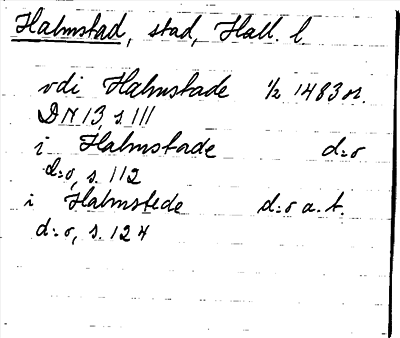 Halmstad, stad, Hall. l.
vdi Halmstade ½ 1483 or.
DN 13, s. 111
i Halmstade d:o
d:o, s. 112
i Halmstede d:o a. t.
d:o, s. 124